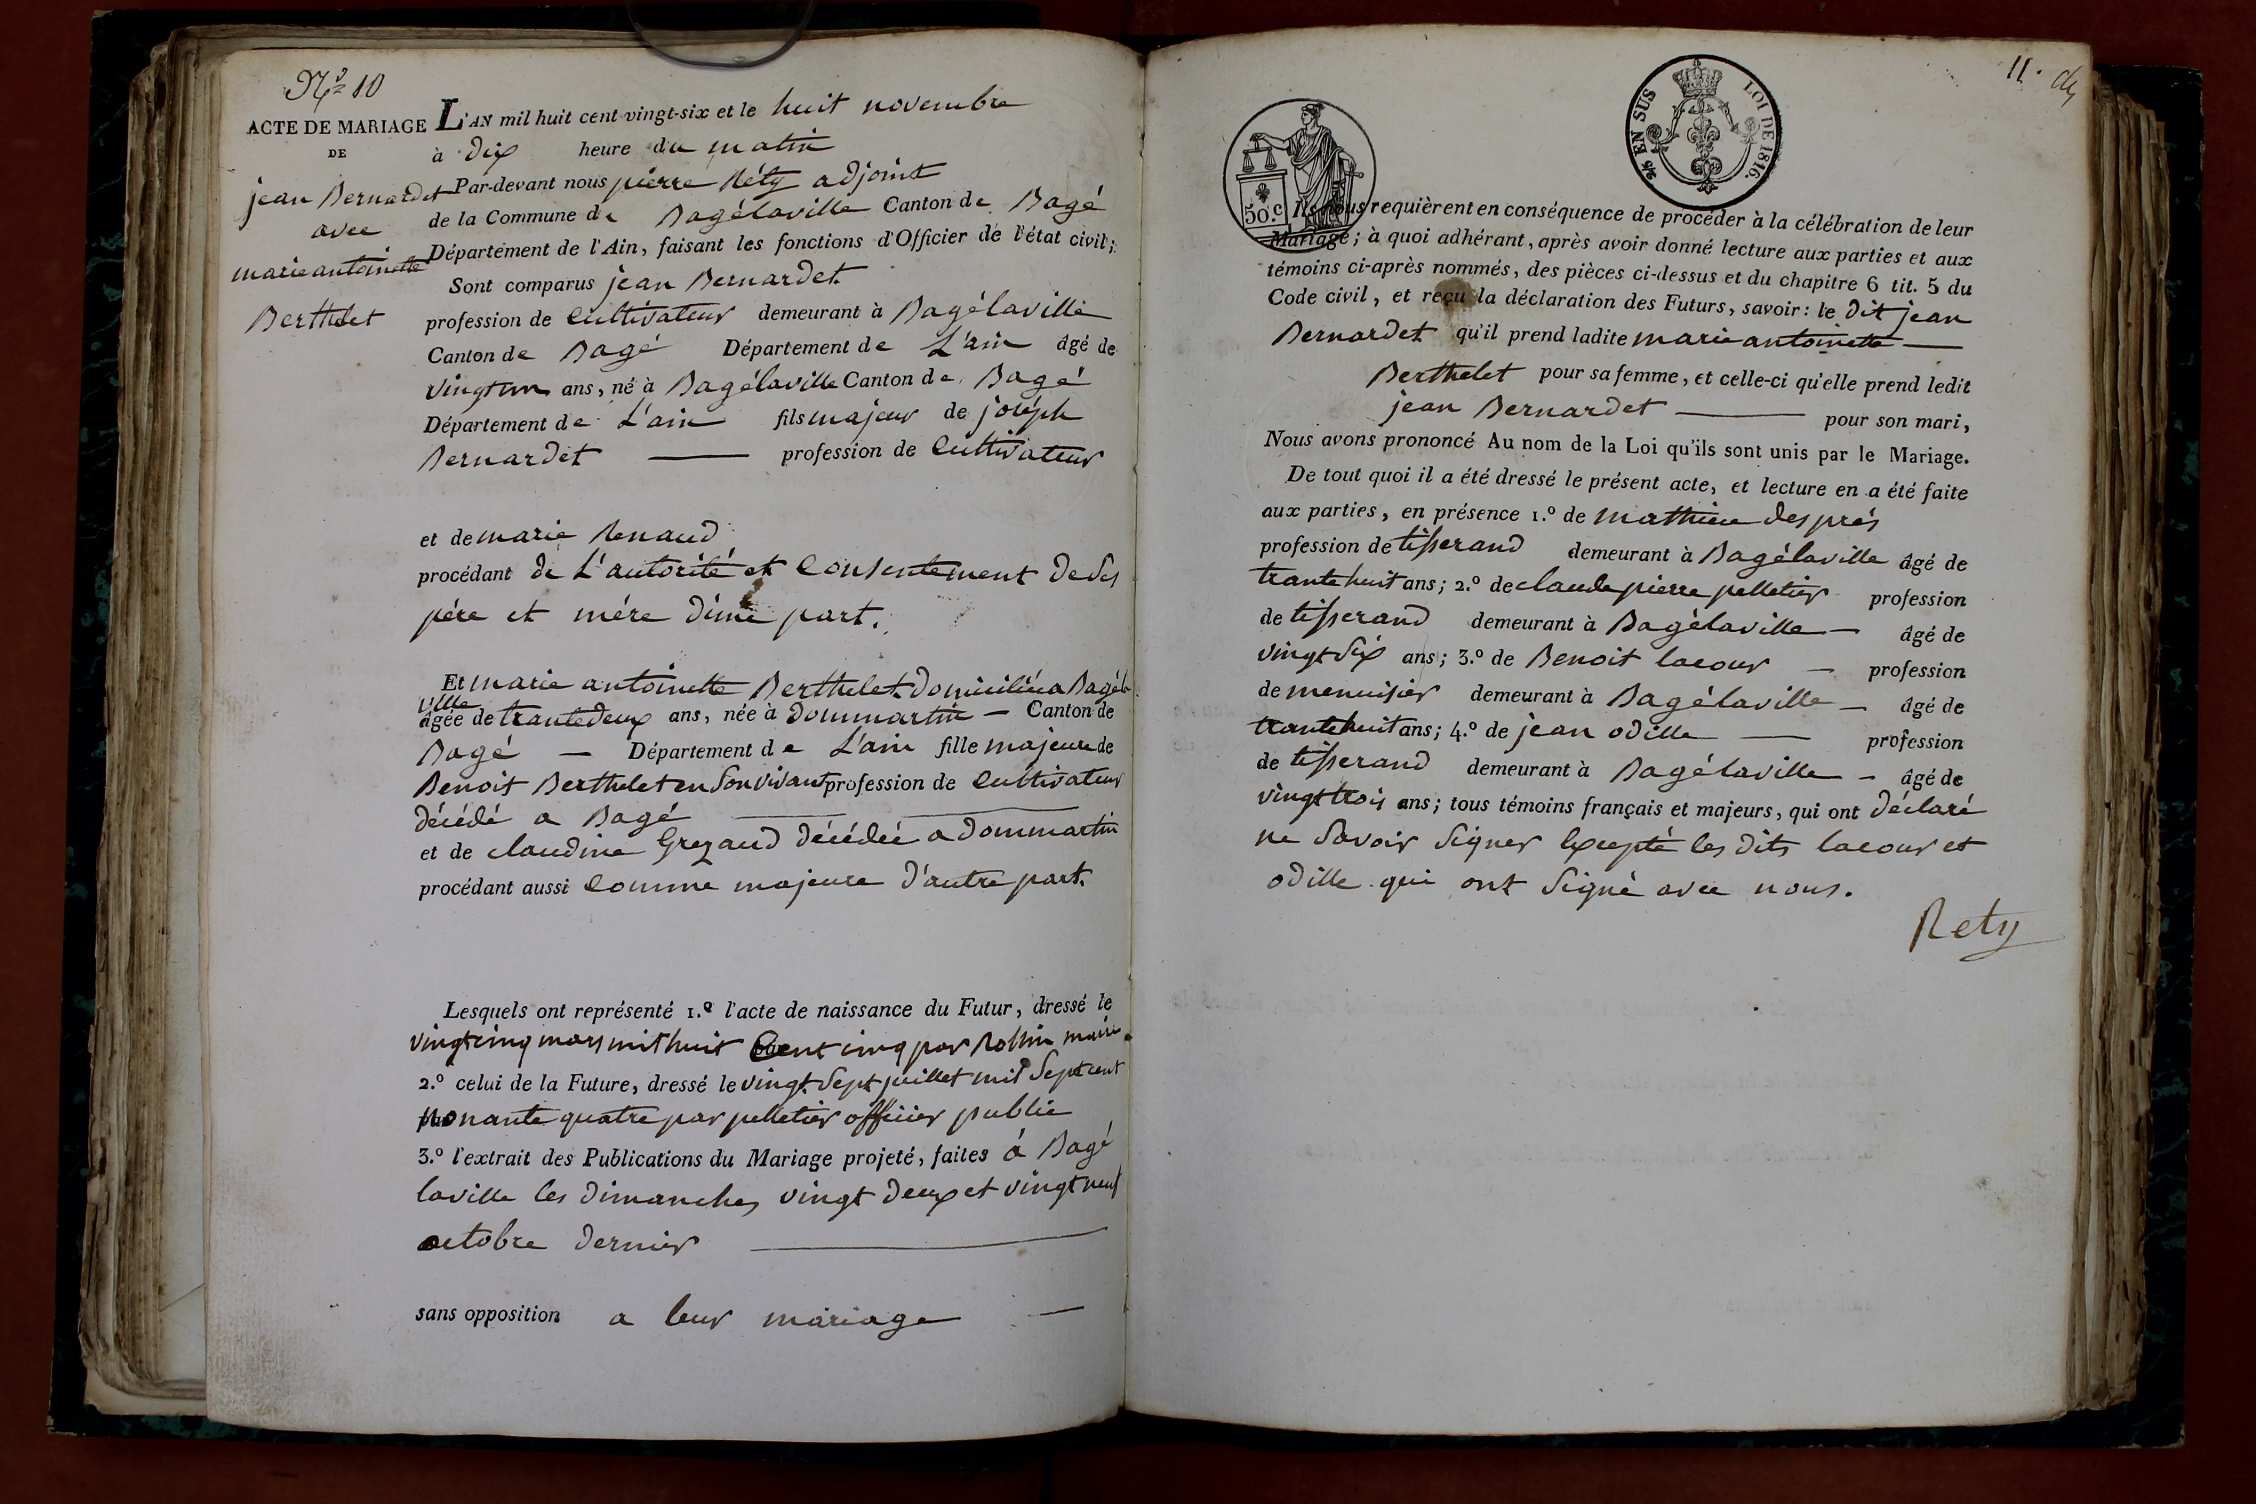 N.º 10
ACTE DE MARIAGE
DE
jean Bernardet
avec
marie antoinette
Berthelet
L'AN mil huit cent vingt-six et le huit novembre
à dix heure du matin
Par-devant nous pierre Réty adjoint
de la Commune de Bagélaville Canton de Bagé
Département de l'Ain, faisant les fonctions d'Officier de l'état civil;
Sont comparus jean Bernardet
profession de Cultivateur demeurant à Bagélaville
Canton de Bagé Département de L'ain âgé de
vingt un ans, né à Bagélaville Canton de Bagé
Département de L'ain fils majeur de joseph
Bernardet profession de Cultivateur
et de marie Renaud
procédant de L'autorité et Consentement de Ses
père et mère d'une part.
Et marie antoinette Berthelet domiciliée a Bagéla
ville
âgée de trante deux ans, née à dommartin — Canton de
Bagé — Département de L'ain fille majeure de
Benoit Berthelet en Son vivant profession de Cultivateur
décédé a Bagé
et de claudine Grezaud décédée a dommartin
procédant aussi Comme majeure d'autre part.
Lesquels ont représenté 1.º l'acte de naissance du Futur, dressé le
vingt cinq mars mil huit Cent cinq par Rollin maire.
2.º celui de la Future, dressé le vingt Sept juillet mil Sept cent
nonante quatre par pelletier officier public
3.º l'extrait des Publications du Mariage projeté, faites à Bagé
laville les dimanches vingt deux et vingt neuf
octobre dernier
sans opposition a leur mariage —
11.
50.c
2/5 EN SUS
LOI DE 1816.
Ils nous requièrent en conséquence de procéder à la célébration de leur
Mariage; à quoi adhérant, après avoir donné lecture aux parties et aux
témoins ci-après nommés, des pièces ci-dessus et du chapitre 6 tit. 5 du
Code civil, et reçu la déclaration des Futurs, savoir: le dit jean
Bernardet qu'il prend ladite marie antoinette —
Berthelet pour sa femme, et celle-ci qu'elle prend ledit
jean Bernardet — pour son mari,
Nous avons prononcé Au nom de la Loi qu'ils sont unis par le Mariage.
De tout quoi il a été dressé le présent acte, et lecture en a été faite
aux parties, en présence 1.º de mathieu després
profession de tisserand demeurant à Bagélaville âgé de
trante huit ans; 2.º de claude pierre pelletier profession
de tisserand demeurant à Bagélaville — âgé de
vingt Six ans; 3.º de Benoit lacour — profession
de menuisier demeurant à Bagélaville — âgé de
trante huit ans; 4.º de jean odille — profession
de tisserand demeurant à Bagélaville — âgé de
vingt trois ans; tous témoins français et majeurs, qui ont déclaré
ne Savoir Signer Excepté les dits lacour et
odille qui ont Signé avec nous.
Rety